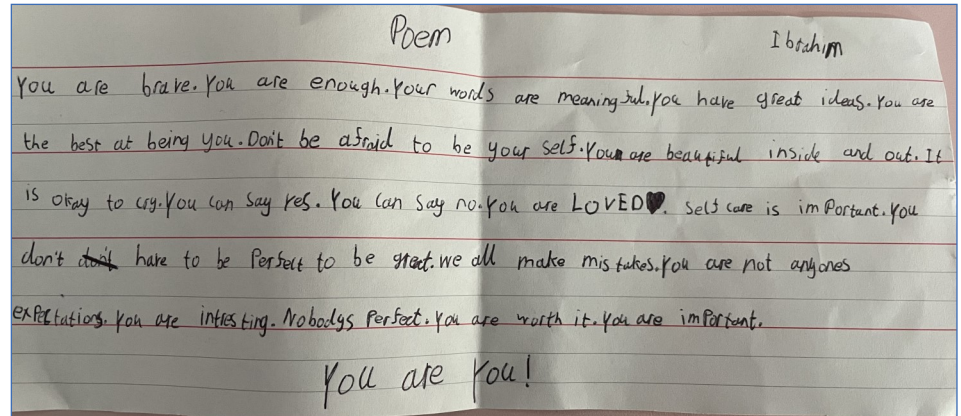 Poem Ibrahim
You are brave. You are enough. Your words are meaningful. You have great ideas. You are
the best at being you. Don't be afraid to be your self. You are beautiful inside and out. It
is okay to cry. You can say yes. You can say no. You are LOVED♥. Self care is important. You
don't don't have to be perfect to be great. we all make mistakes. You are not anyones
expectations. You are intresting. Nobodys perfect. You are worth it. You are important.
You are you!